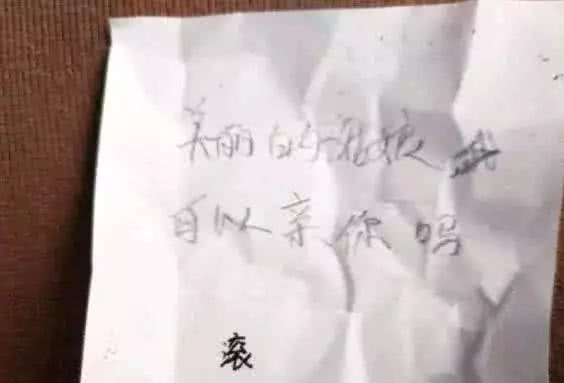 美丽的姑娘
可以亲你吗
滚